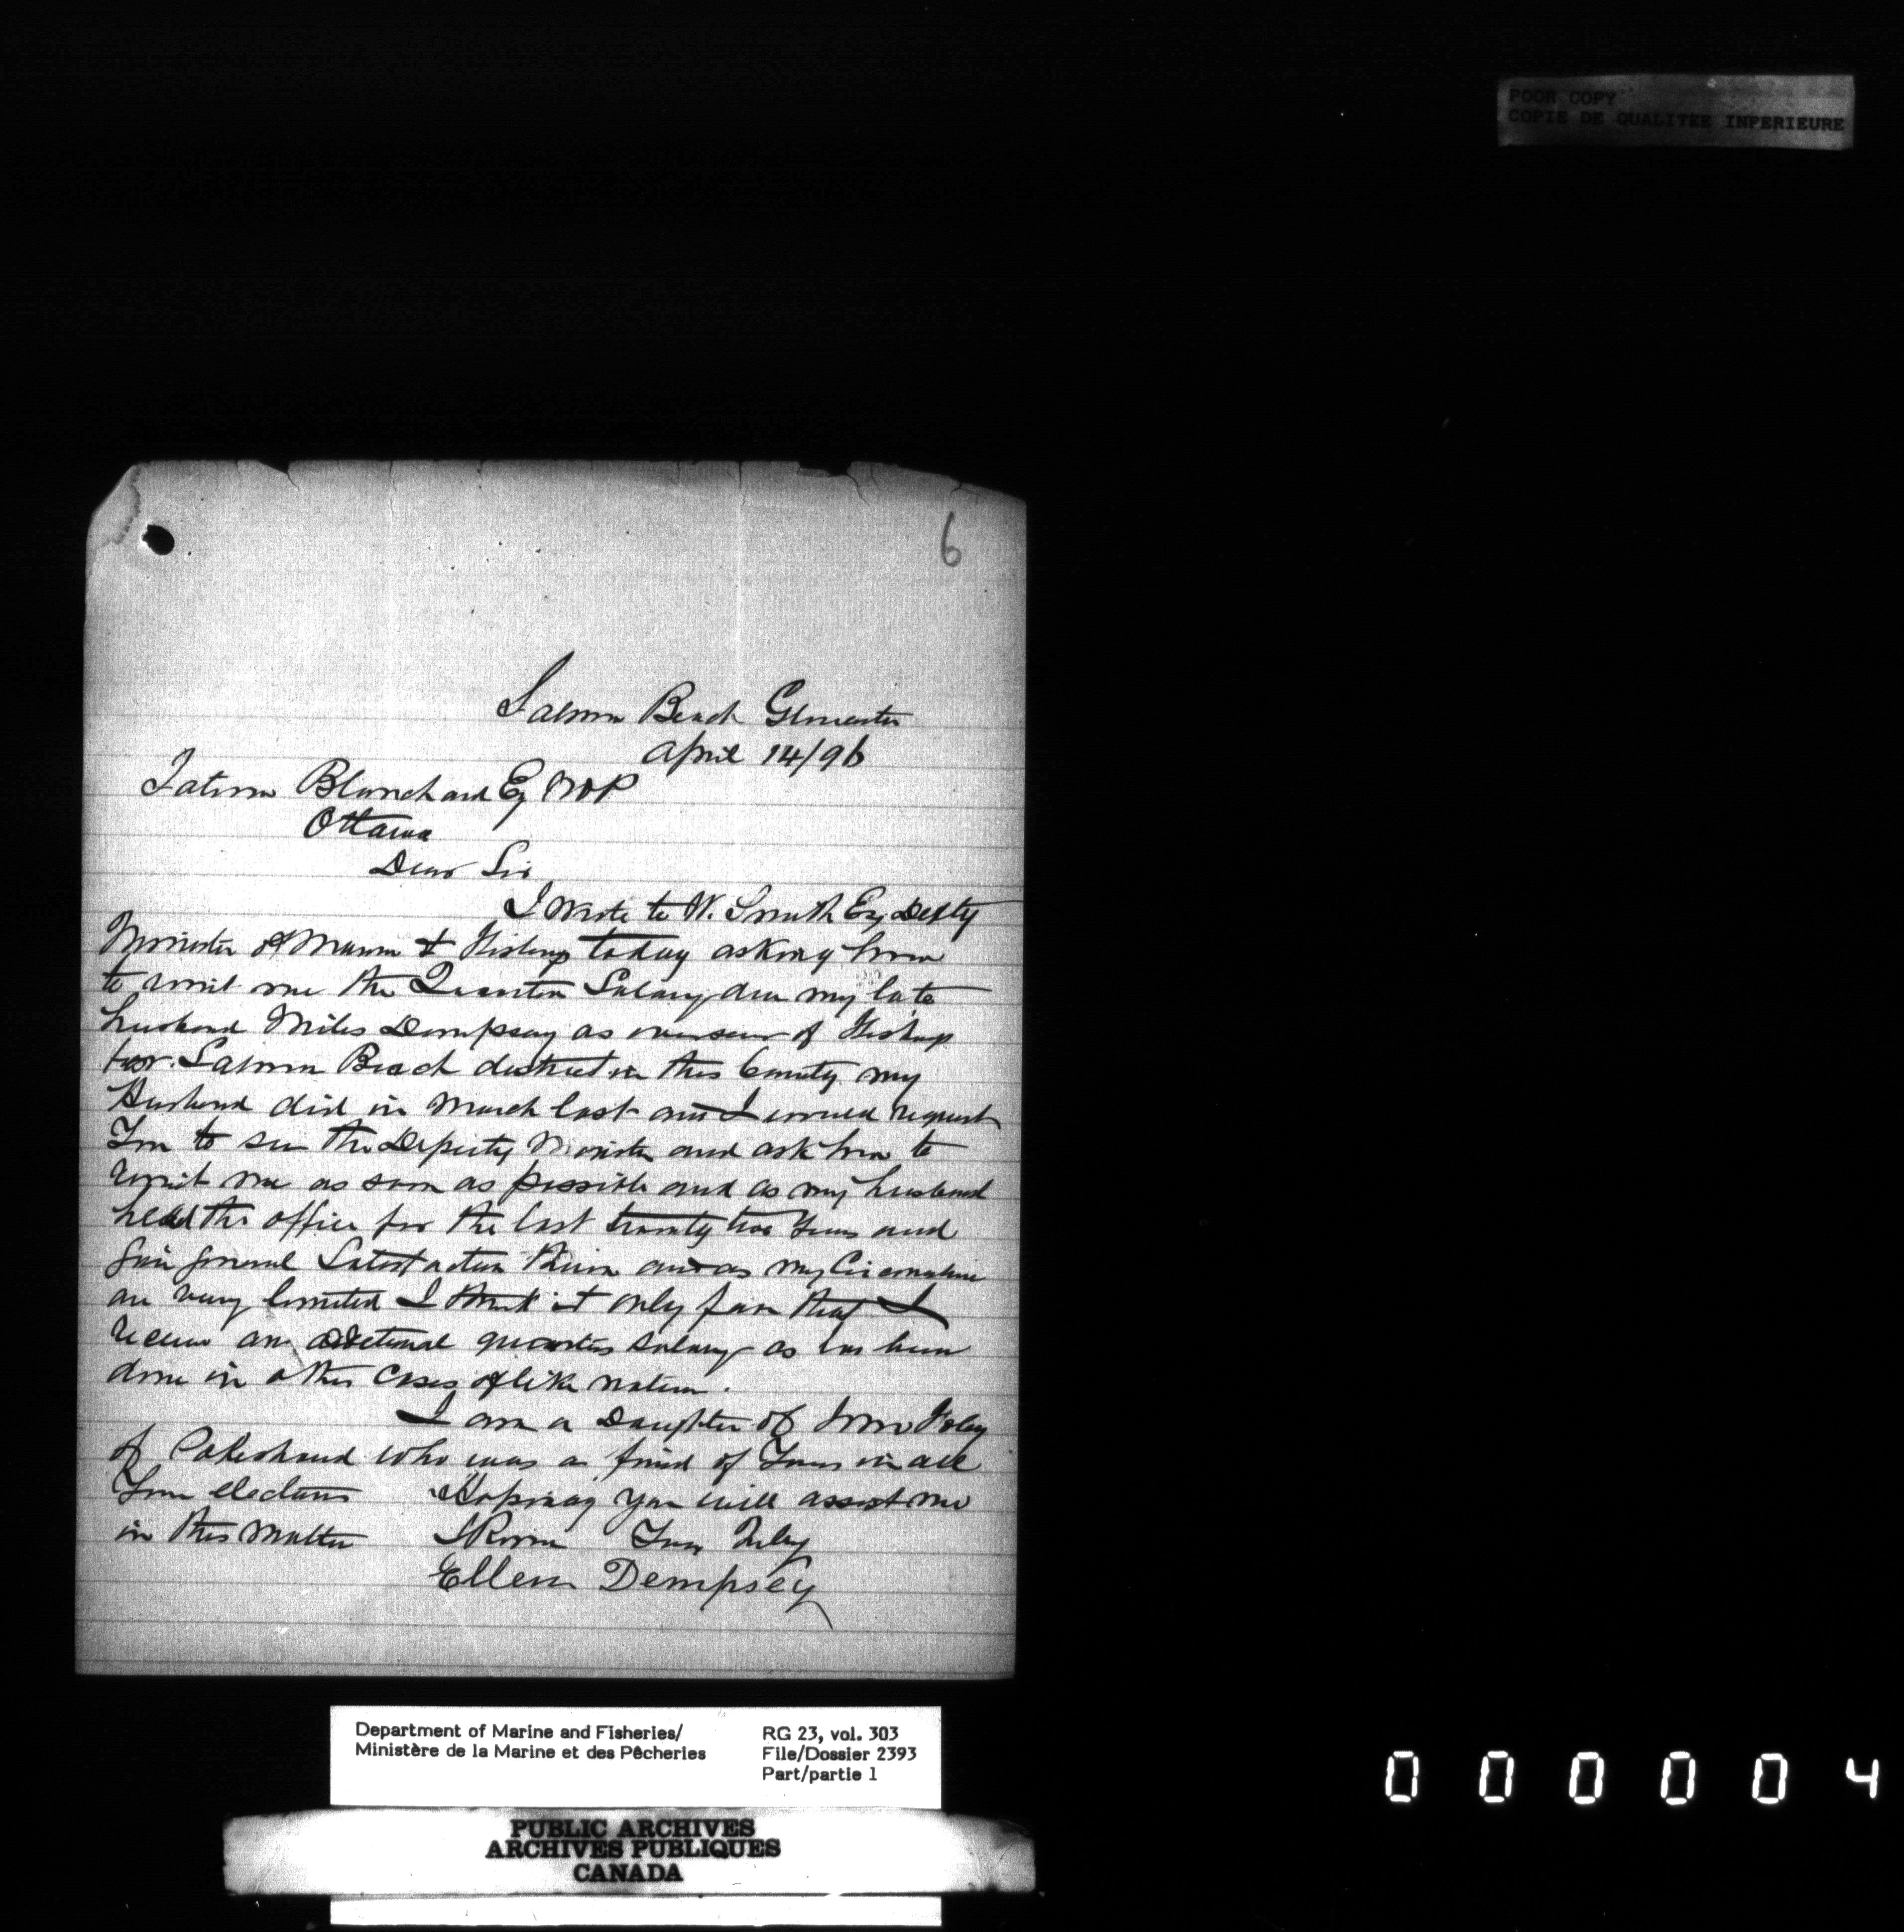 POOR COPY
COPIE DE QUALITEE INFERIEURE
6
Salmon Beach Gloucester
April 14/96
Blanchard Esq MP
Ottawa
Dear Sir
I wrote to W. Smith Esq Depty
Minister of Marine & Fisherys today asking him
to remit me the Quarter Salary due my late
husband Miles Dempsey as overseer of Fisherys
for Salmon Beach district in this County my
Husband died in March last and I would request
You to see the Deputy Minister and ask him to
remit me as soon as possible and as my husband
held the office for the last twenty two years and
general Satesfaction and as my
are very limited I think it only fair that I
receive an quarters salary as has been
done in other Cases of like nature.
I am a Daughter of John Foley
of who was a friend of Yours in all
Your elections Hoping you will assist me
in this matter I Remain Your Truly
Ellen Dempsey
Department of Marine and Fisheries/
Ministère de la Marine et des Pêcheries
RG 23, vol. 303
File/Dossier 2393
Part/partie 1
PUBLIC ARCHIVES
ARCHIVES PUBLIQUES
CANADA
000004